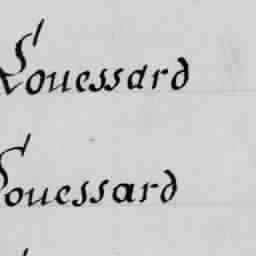 Louessard
Louessard